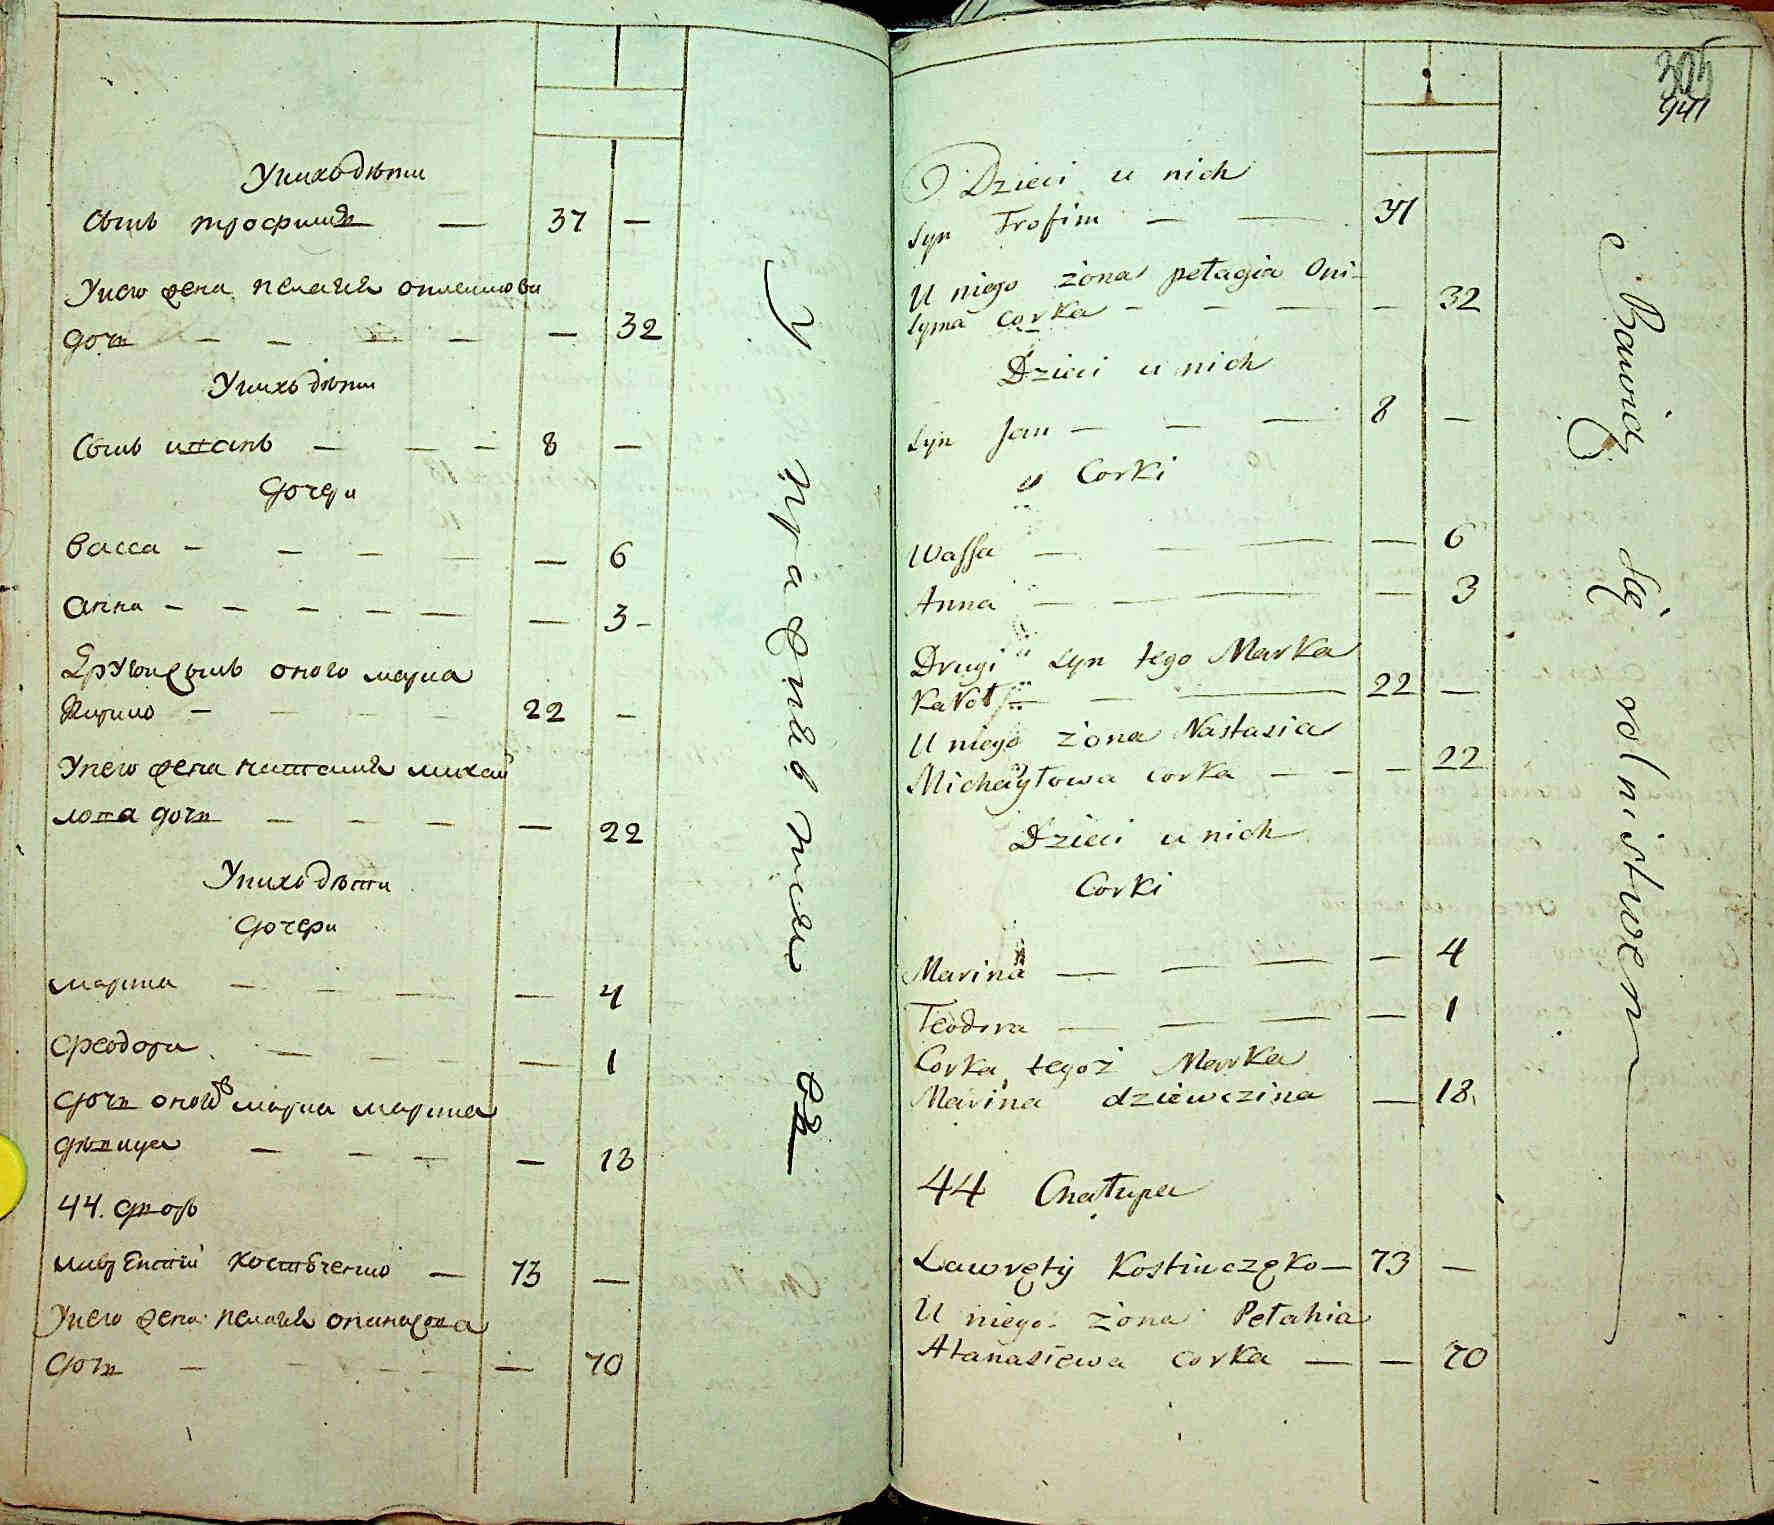 У нихъ дѣти
Сынъ трофимъ — 37 —
У него жена пелагия онисимова
дочь — — — — — 32
У нихъ дѣти
Сынъ иванъ — — — 8 —
дочери
васса — — — — — 6
анна — — — — — — 3 -
Другой сынъ оного марка
Кирило — — — — 22 —
У него жена настасия михай
лова дочь — — — — 22
У нихъ дѣти
дочери
марина — — — — 4
феодора — — — — 1
дочь оногожъ марка марина
дѣвица — — — — — 18
44. дворъ
Костюченко — 73 —
У него жена пелагия
дочь — — — — — 70
Dzieci u nich
Syn Trofim — — 37
U niego żona pełagia Oni-
syma corka - - — — 32
Dzieci u nich
Syn Jan — — — 8 —
Corki
Wassa — — — — 6
Anna — — — — 3
Drugi syn tego Marka
— — 22 —
U niego żona Nastasia
Michayłowa corka — — — 22
Dzieci u nich
Corki
Marina — — — — 4
Teodora — — — — 1
Corka tegoż Marka
Marina dziewczina — 18
44 Chałupa
Ławręty — 73 —
U niego żona Pełahia
Atanasiewa corka — — 70
Bawią się rolnistwem
305
941